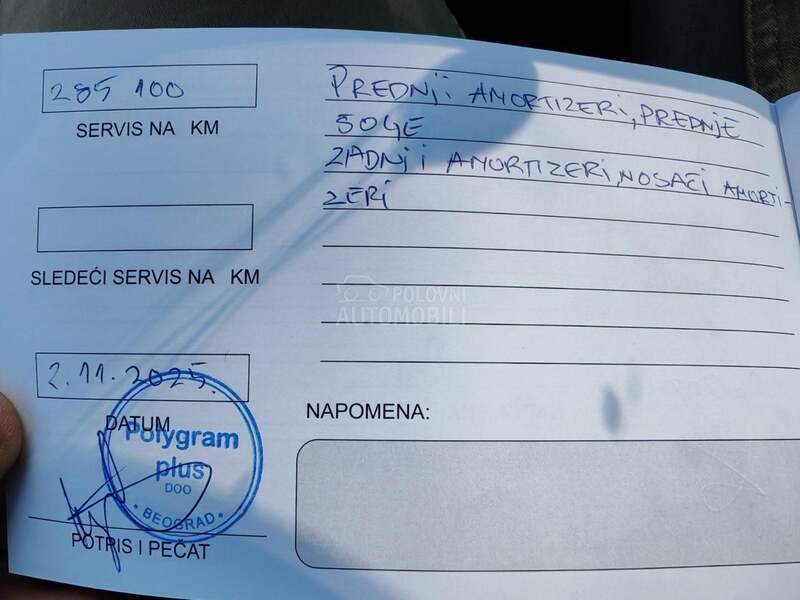 285 100
SERVIS NA KM
SLEDEĆI SERVIS NA KM
2.11.2025.
DATUM
Polygram
plus
DOO
• BEOGRAD •
POTPIS I PEČAT
PREDNJI AMORTIZERI, PREDNJE
ŠOLJE
ZADNJI AMORTIZERI, NOSAČI AMORTI-
ZERI
NAPOMENA:
POLOVNI
AUTOMOBILI